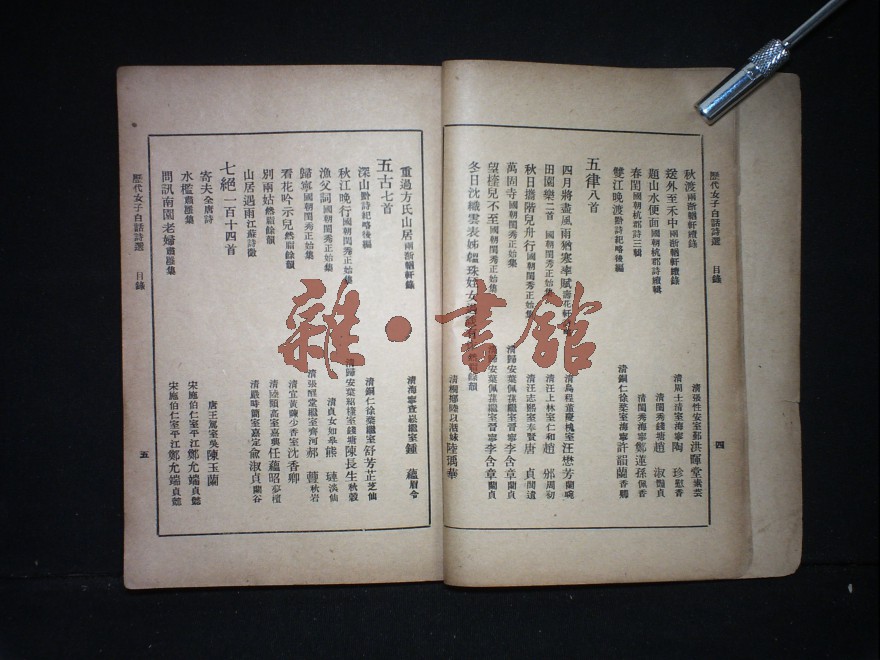 歷代女子白話詩選　目錄
四
秋渡兩浙輶軒續錄　清張性安室鄞洪暉堂
送外至禾中兩浙輶軒續錄　清周士清室海寧陶　珍慰香
題山水便面國朝杭郡詩續輯　清閨秀錢塘趙　淑
春閨國朝杭郡詩三輯　清閨秀海寧鄭　孫佩香
雙江晚渡黔詩紀略後編　清銅仁徐棻室海寧許韻蘭香卿
五律八首
四月將盡風雨猶寒率賦　清烏程董慶槐室汪懋芳蘭畹
田園樂二首　國朝閨秀正始集　清汪上林室仁和趙　邠周初
秋日攜階兒舟行國朝閨秀正始集　清汪志熙室奉賢唐　貞
萬固寺國朝閨秀正始集　清歸安葉佩蓀繼室晉寧李含章蘭貞
望槿兒不至國朝閨秀正始集　清歸安葉佩蓀繼室晉寧李含章蘭貞
冬日沈織雲表姊　陸瑀華
重過方氏山居兩浙輶軒錄　清海寧查　繼室鍾　蘊眉令
五古七首
深山黔詩紀略後編　清銅仁徐棻繼室舒芳芷芝仙
秋江晚行國朝閨秀正始集　清歸安葉　室錢塘陳長生秋穀
漁父詞國朝閨秀正始集　清貞女如皋熊　璉澹仙
歸寧國朝閨秀正始集　清張醒堂繼室齊河郝　秋岩
看花吟示兒然脂餘韻　清宜黃陳少香室沈香卿
別兩姑然脂餘韻　清陸　高室嘉興任蘊昭夢檀
山居遇雨江蘇詩徵　清嚴時蘭室嘉定俞淑貞蘭谷
七絕一百十四首
寄夫全唐詩　唐王駕室吳陳玉蘭
水檻肅雝集　宋施伯仁室平江鄭允端貞懿
問訊南園老婦肅雝集　宋施伯仁室平江鄭允端貞懿
歷代女子白話詩選　目錄
五
雜·書館